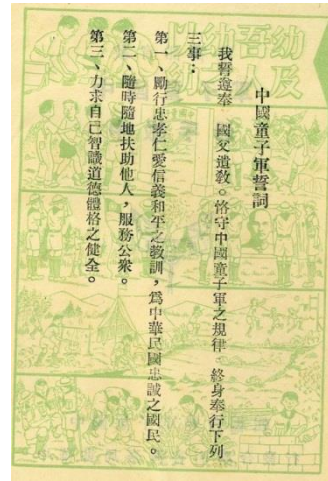 中國童子軍誓詞
我誓遵奉　國父遺教。恪守中國童子軍之規律，終身奉行下列
三事：
第一、勵行忠孝仁愛信義和平之教訓，爲中華民國忠誠之國民。
第二、隨時隨地扶助他人，服務公衆。
第三、力求自己智識道德體格之健全。